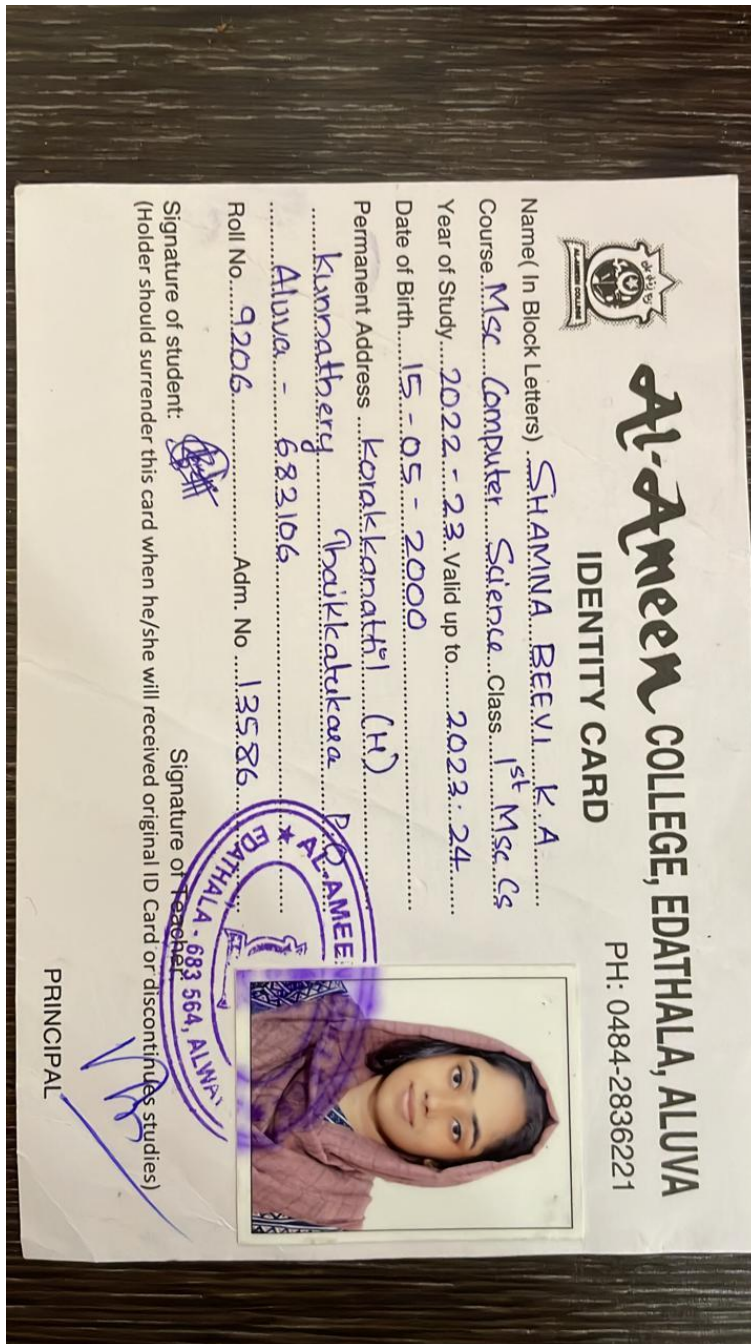 Al-Ameen COLLEGE, EDATHALA, ALUVA
PH: 0484-2836221
IDENTITY CARD
ALAMEEN COLLEGE
Name( In Block Letters) SHAMNA BEEVI K.A
Course Msc Computer Science Class 1st Msc Cs
Year of Study 2022 - 23 Valid up to 2023-24
Date of Birth 15 - 05 - 2000
Permanent Address Korakkanattil (H)
Kunnathery Thaikkatukara P.O
Aluva - 683106
Roll No. 9206 Adm. No 13586
Signature of student: Signature of Teacher
(Holder should surrender this card when he/she will received original ID Card or discontinues studies)
PRINCIPAL
AL-AMEE
EDATHALA - 683 564, ALWAY